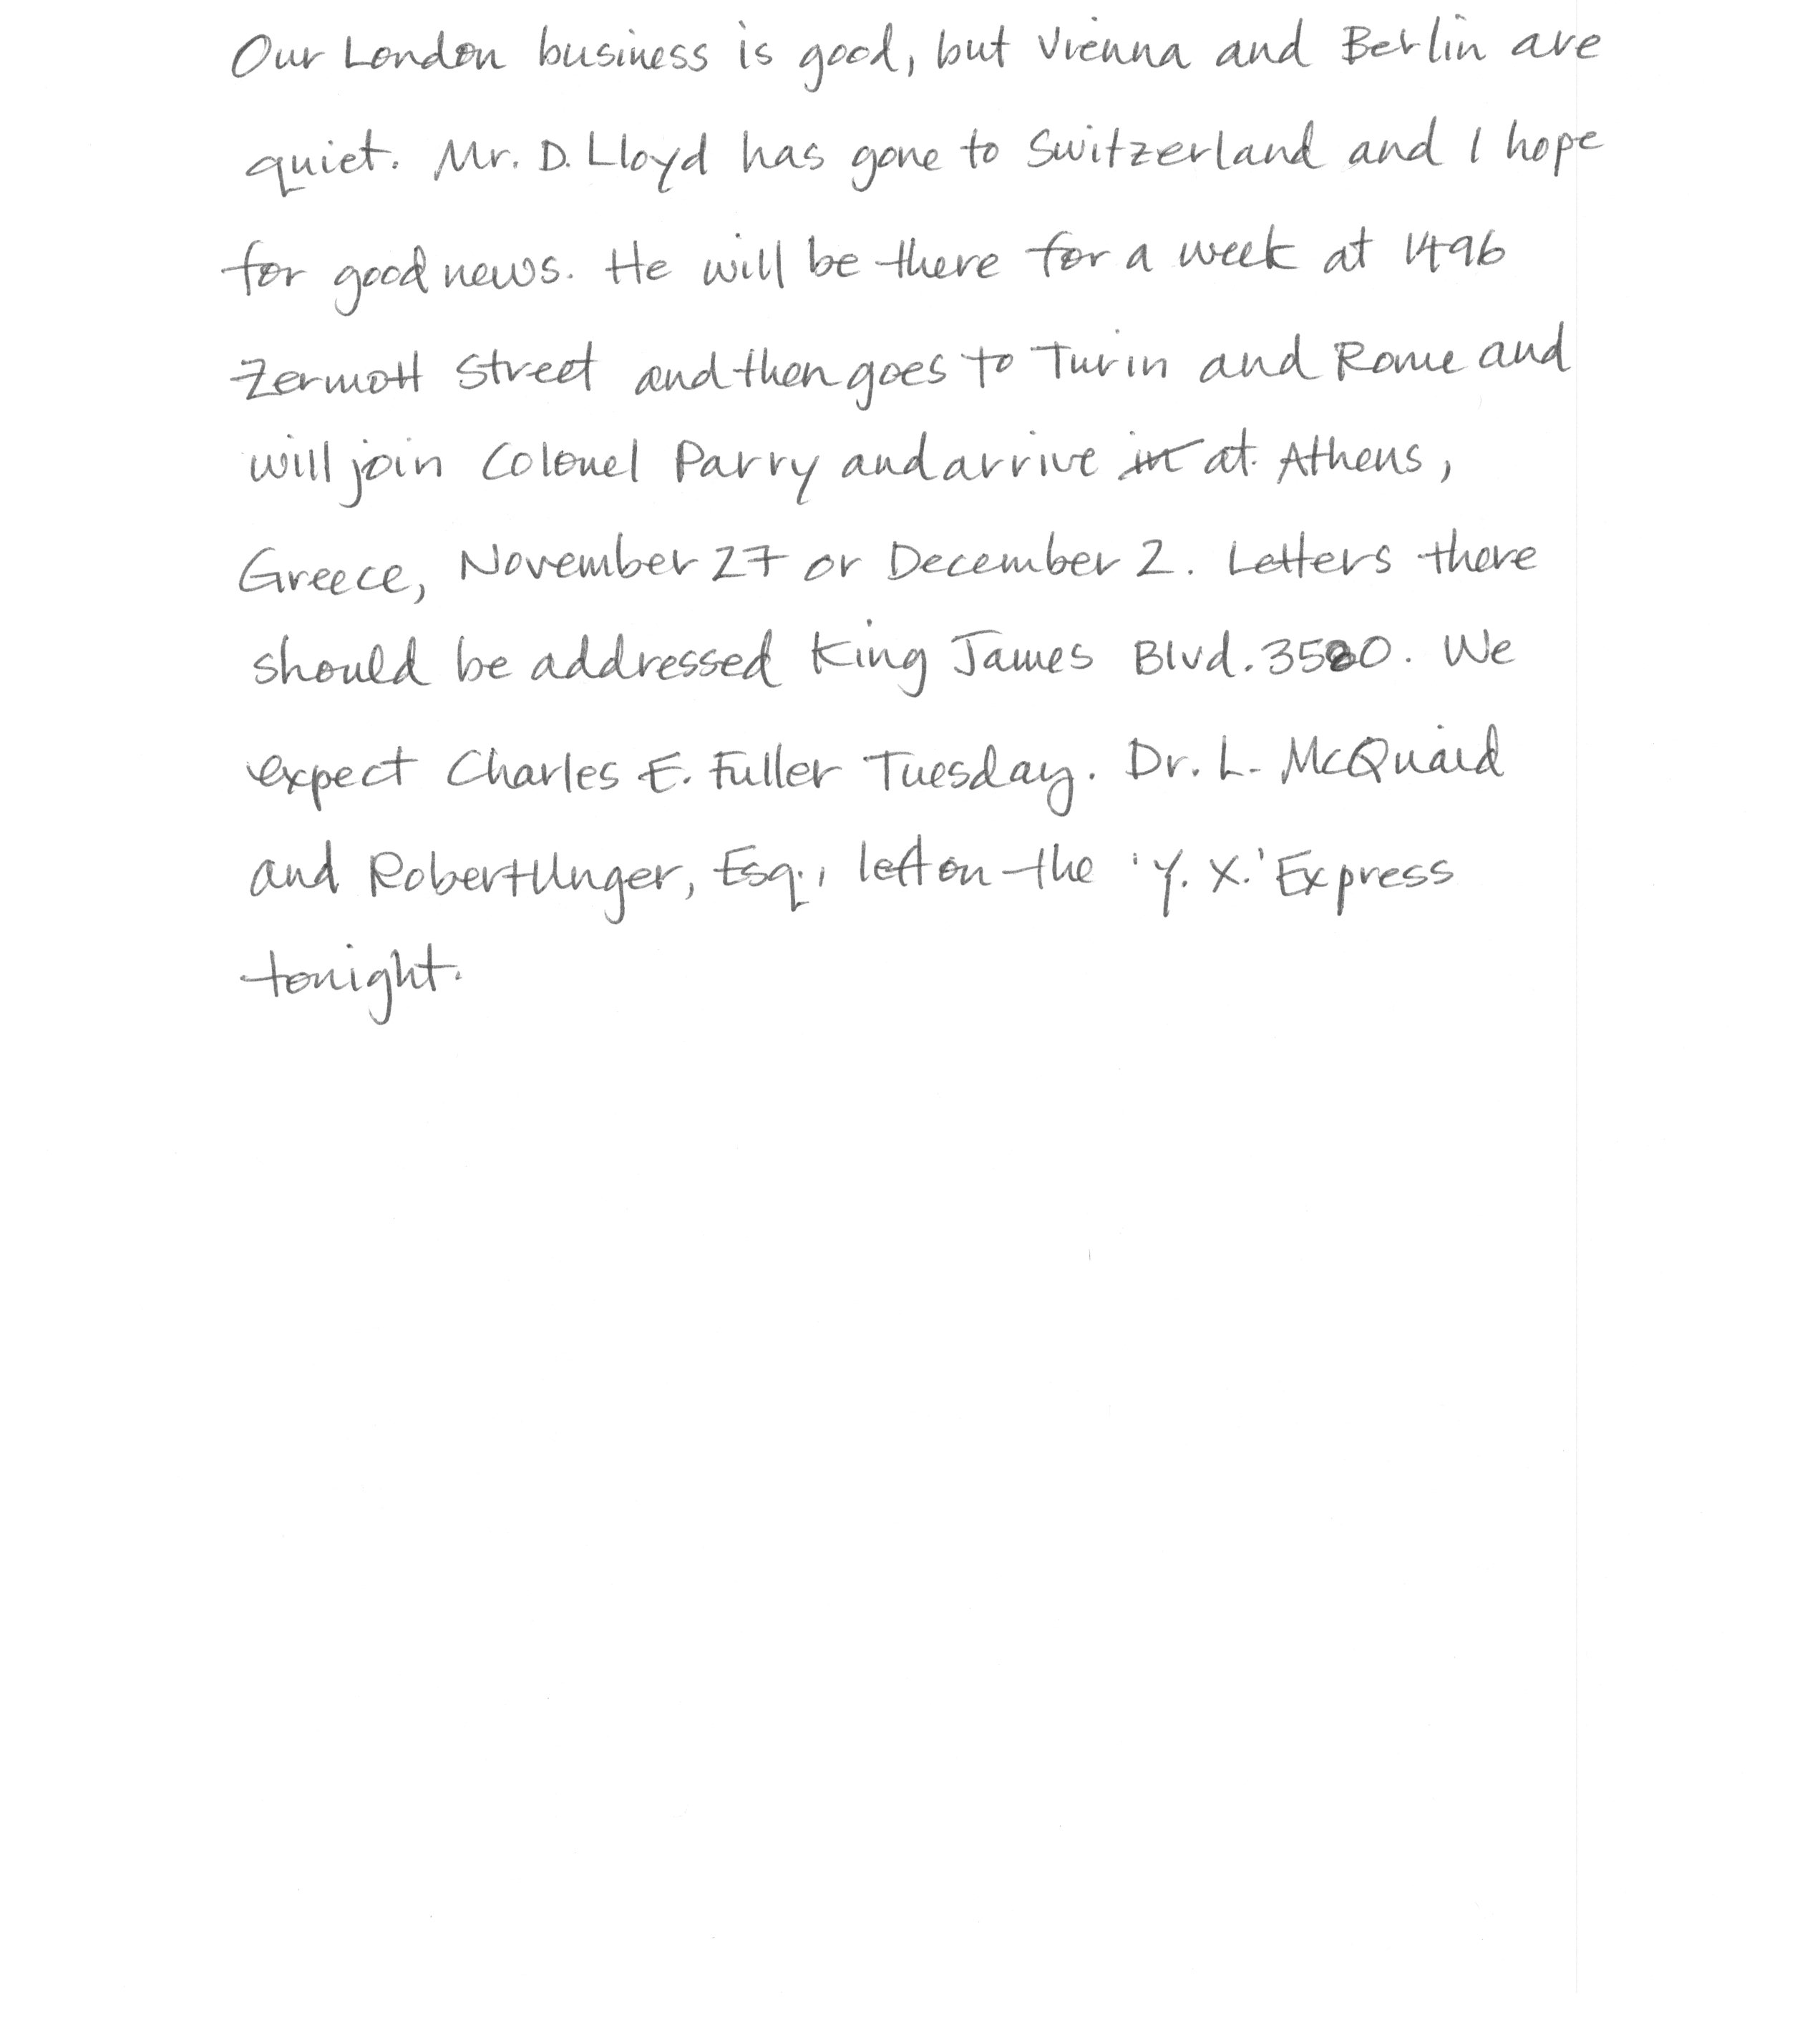 Our London business is good, but Vienna and Berlin are
quiet. Mr. D. Lloyd has gone to Switzerland and I hope
for good news. He will be there for a week at 1496
Zermott Street and then goes to Turin and Rome and
will join Colonel Parry and arrive in at Athens,
Greece, November 27 or December 2. Letters there
should be addressed King James Blvd. 3580. We
expect Charles E. Fuller Tuesday. Dr. L. McQuaid
and Robert Unger, Esq., left on the 'Y. X.' Express
tonight.